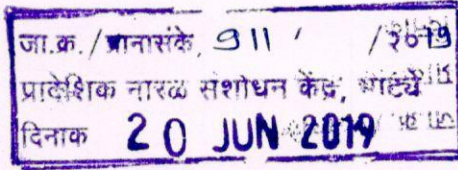 जा.क्र./प्रानासंके, 911 / २०19
प्रादेशिक नारळ संशोधन केंद्र, भाट्ये
दिनाक 20 JUN 2019